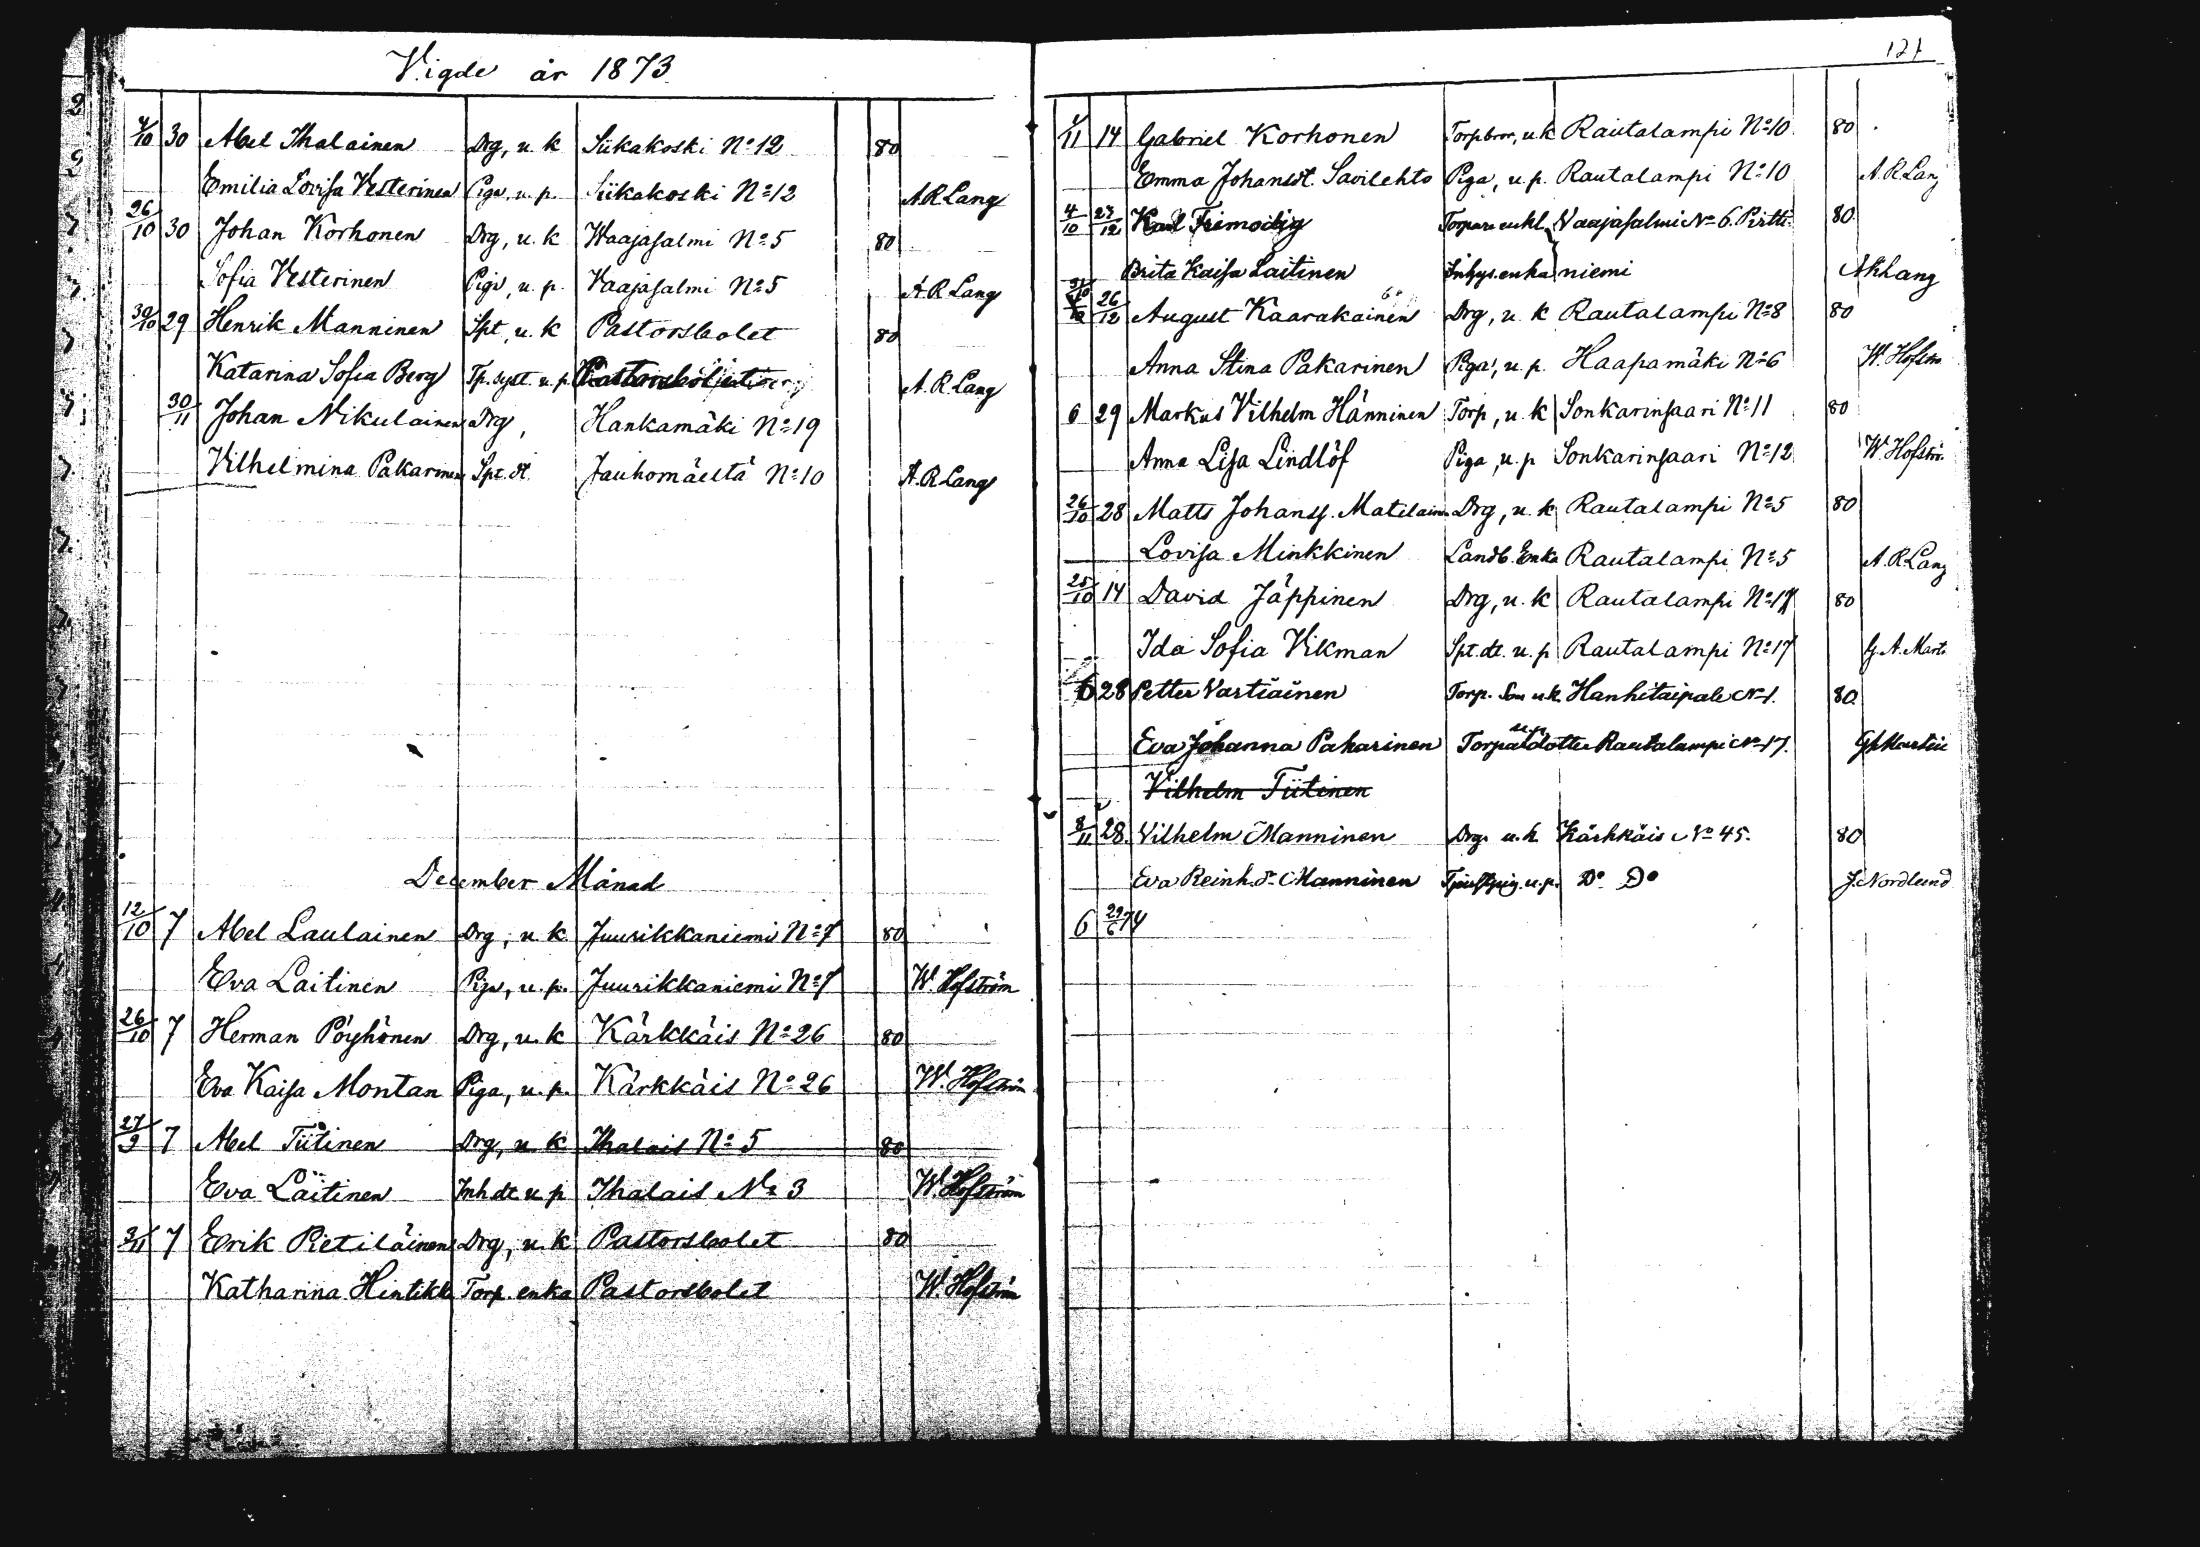 Vigde år 1873
4/10 30 Abel Ihalainen Drg, u. k Siikakoski No 12 80
Emilia Lovisa Vesterinen Piga, u. p. Siikakoski No 12 A R Lang
26/10 30 Johan Korhonen Drg, u. k Waajasalmi No 5 80
Sofia Vesterinen Piga, u. p. Vaajasalmi No 5 A R Lang
30/10 29 Henrik Manninen Spt, u. k Pastorsbolet 80
Katarina Sofia Berg Tp. syst. u. p. A. R Lang
30/11 Johan Nikulainen Drg, Hankamäki No 19
Vilhelmina Pakarinen Spt. dt Jauhomäeltä No 10 A. R Lang
December Månad
12/10 7 Abel Laulainen Drg, u. k. Juurikkaniemi No 7 80
Eva Laitinen Piga, u. p. Juurikkaniemi No 7 W. Hofström
26/10 7 Herman Pöyhönen Drg, u. k Kärkkäis No 26 80
Eva Kaisa Montan Piga, u. p. Kärkkäis No 26 W. Hofström
27/9 7 Abel Tiitinen Drg, u. k Ihalais No 5 80
Eva Laitinen Inh dt u. p Ihalais No 3 W. Hofström
3/11 7 Erik Pietiläinen Drg, u. k Pastorsbolet 80
Katharina Hintikka Torp. enka Pastorsbolet W. Hofström
121
/11 14 Gabriel Korhonen Torp.bror, u. k Rautalampi No 10 80
Emma Johansdt. Savilehto Piga, u. p. Rautalampi No 10 A. R Lang
4/10 27/12 Karl Frimodig Torpare enkl. Vaajasalmi No 6. Pirtti- 80
Brita Kaisa Laitinen Inhys. enka niemi A R Lang
31/10 26/12 August Kaarakainen Drg, u. k Rautalampi No 8 80
Anna Stina Pakarinen Piga, u. p. Haapamäki No 6 W. Hofströ
6 29 Markus Vilhelm Hänninen Torp, u. k Sonkarinsaari No 11 80
Anna Lisa Lindlöf Piga, u. p Sonkarinsaari No 12 W. Hofströ
26/10 28 Matts Johanss. Matilain Drg, u. k Rautalampi No 5 80
Lovisa Minkkinen Landb. Enka Rautalampi No 5 A. R Lang
25/10 14 David Jäppinen Drg, u. k Rautalampi No 17 80
Ida Sofia Vikman Spt. dt. u. p Rautalampi No 17 G. A. Marti
6 28 Petter Vartiainen Torp. Son u. k. Hanhitaipale No 1. 80
Eva Johanna Pakarinen Torpardotter u. p. Rautalampi No 17. G A Martin
Vilhelm Tiitinen
8/11 28. Vilhelm Manninen Drg. u. k. Kärkkäis No 45. 80
Eva Reinh. dr Manninen u. p. Do Do J. Nordlund
6 29/6 74